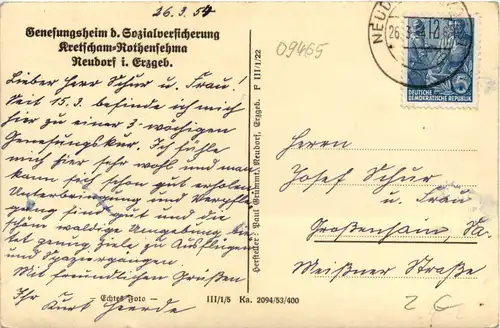 26.3.54
Genesungsheim d. Sozialversicherung
Kretscham-Rothensehma
Neudorf i. Erzgeb.
Lieber Herr Schur u. Frau!
Seit 15.3. befinde ich mich
hier zu einer 3-wöchigen
Genesungskur. Ich fühle
mich hier sehr wohl und man
kann sich schon gut erholen
Unterbringung und Verpfle-
gung sind gut und die
schöne waldige Umgebung bie-
tet genug Ziele zu Ausflügen
und Spaziergängen
Mit freundlichen Grüßen
Ihr
Kurt Heerde
Echtes Foto
III/1/5 Ka. 2094/53/400
Hersteller: Paul Grummt, Neudorf, Erzgeb. F III/1/22
09465
NEUDO
26.3.54
12
DEUTSCHE
DEMOKRATISCHE REPUBLIK
Herrn
Josef Schur
u. Frau
Großenhain, Sa.
Meißner Straße